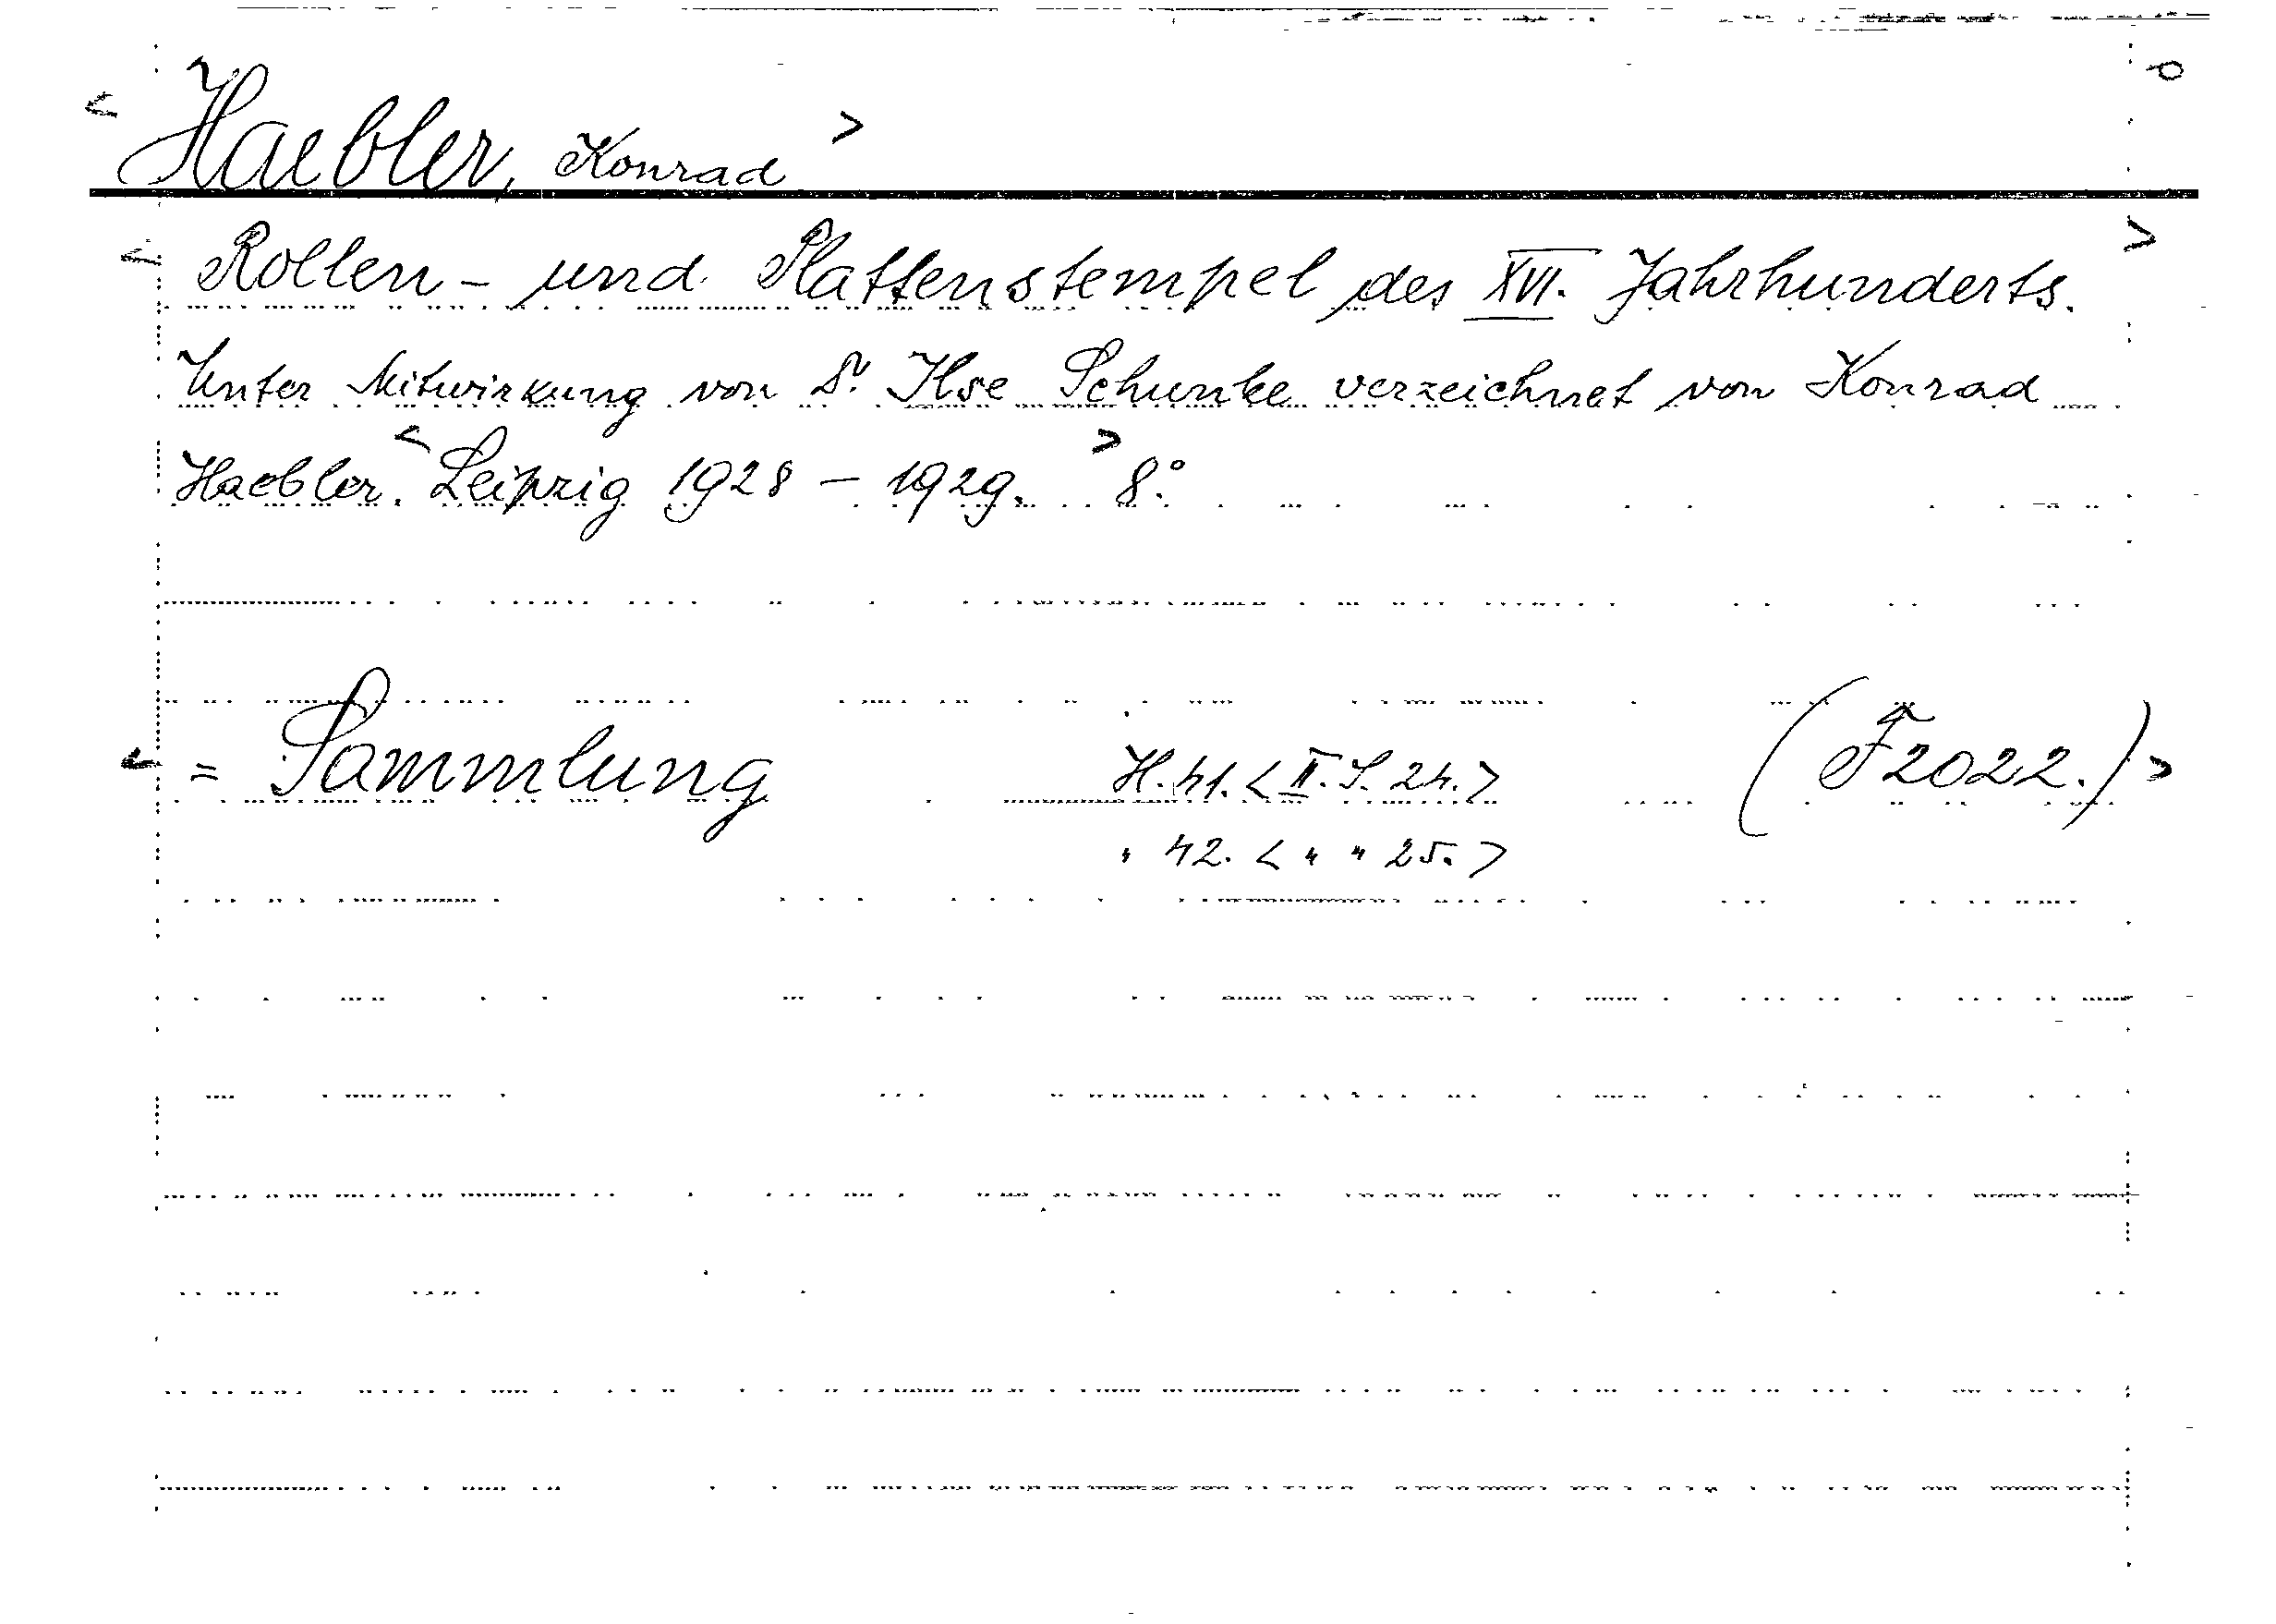 < Haebler, Konrad >
< Rollen- und Plattenstempel des XVI. Jahrhunderts. >
Unter Mitwirkung von Dr. Ilse Schunke verzeichnet von Konrad
Haebler. < Leipzig 1928 – 1929. > 8.°
< = Sammlung H. 41. < II. S. 24. > (F 2022.) >
" 42. < " " 25. >